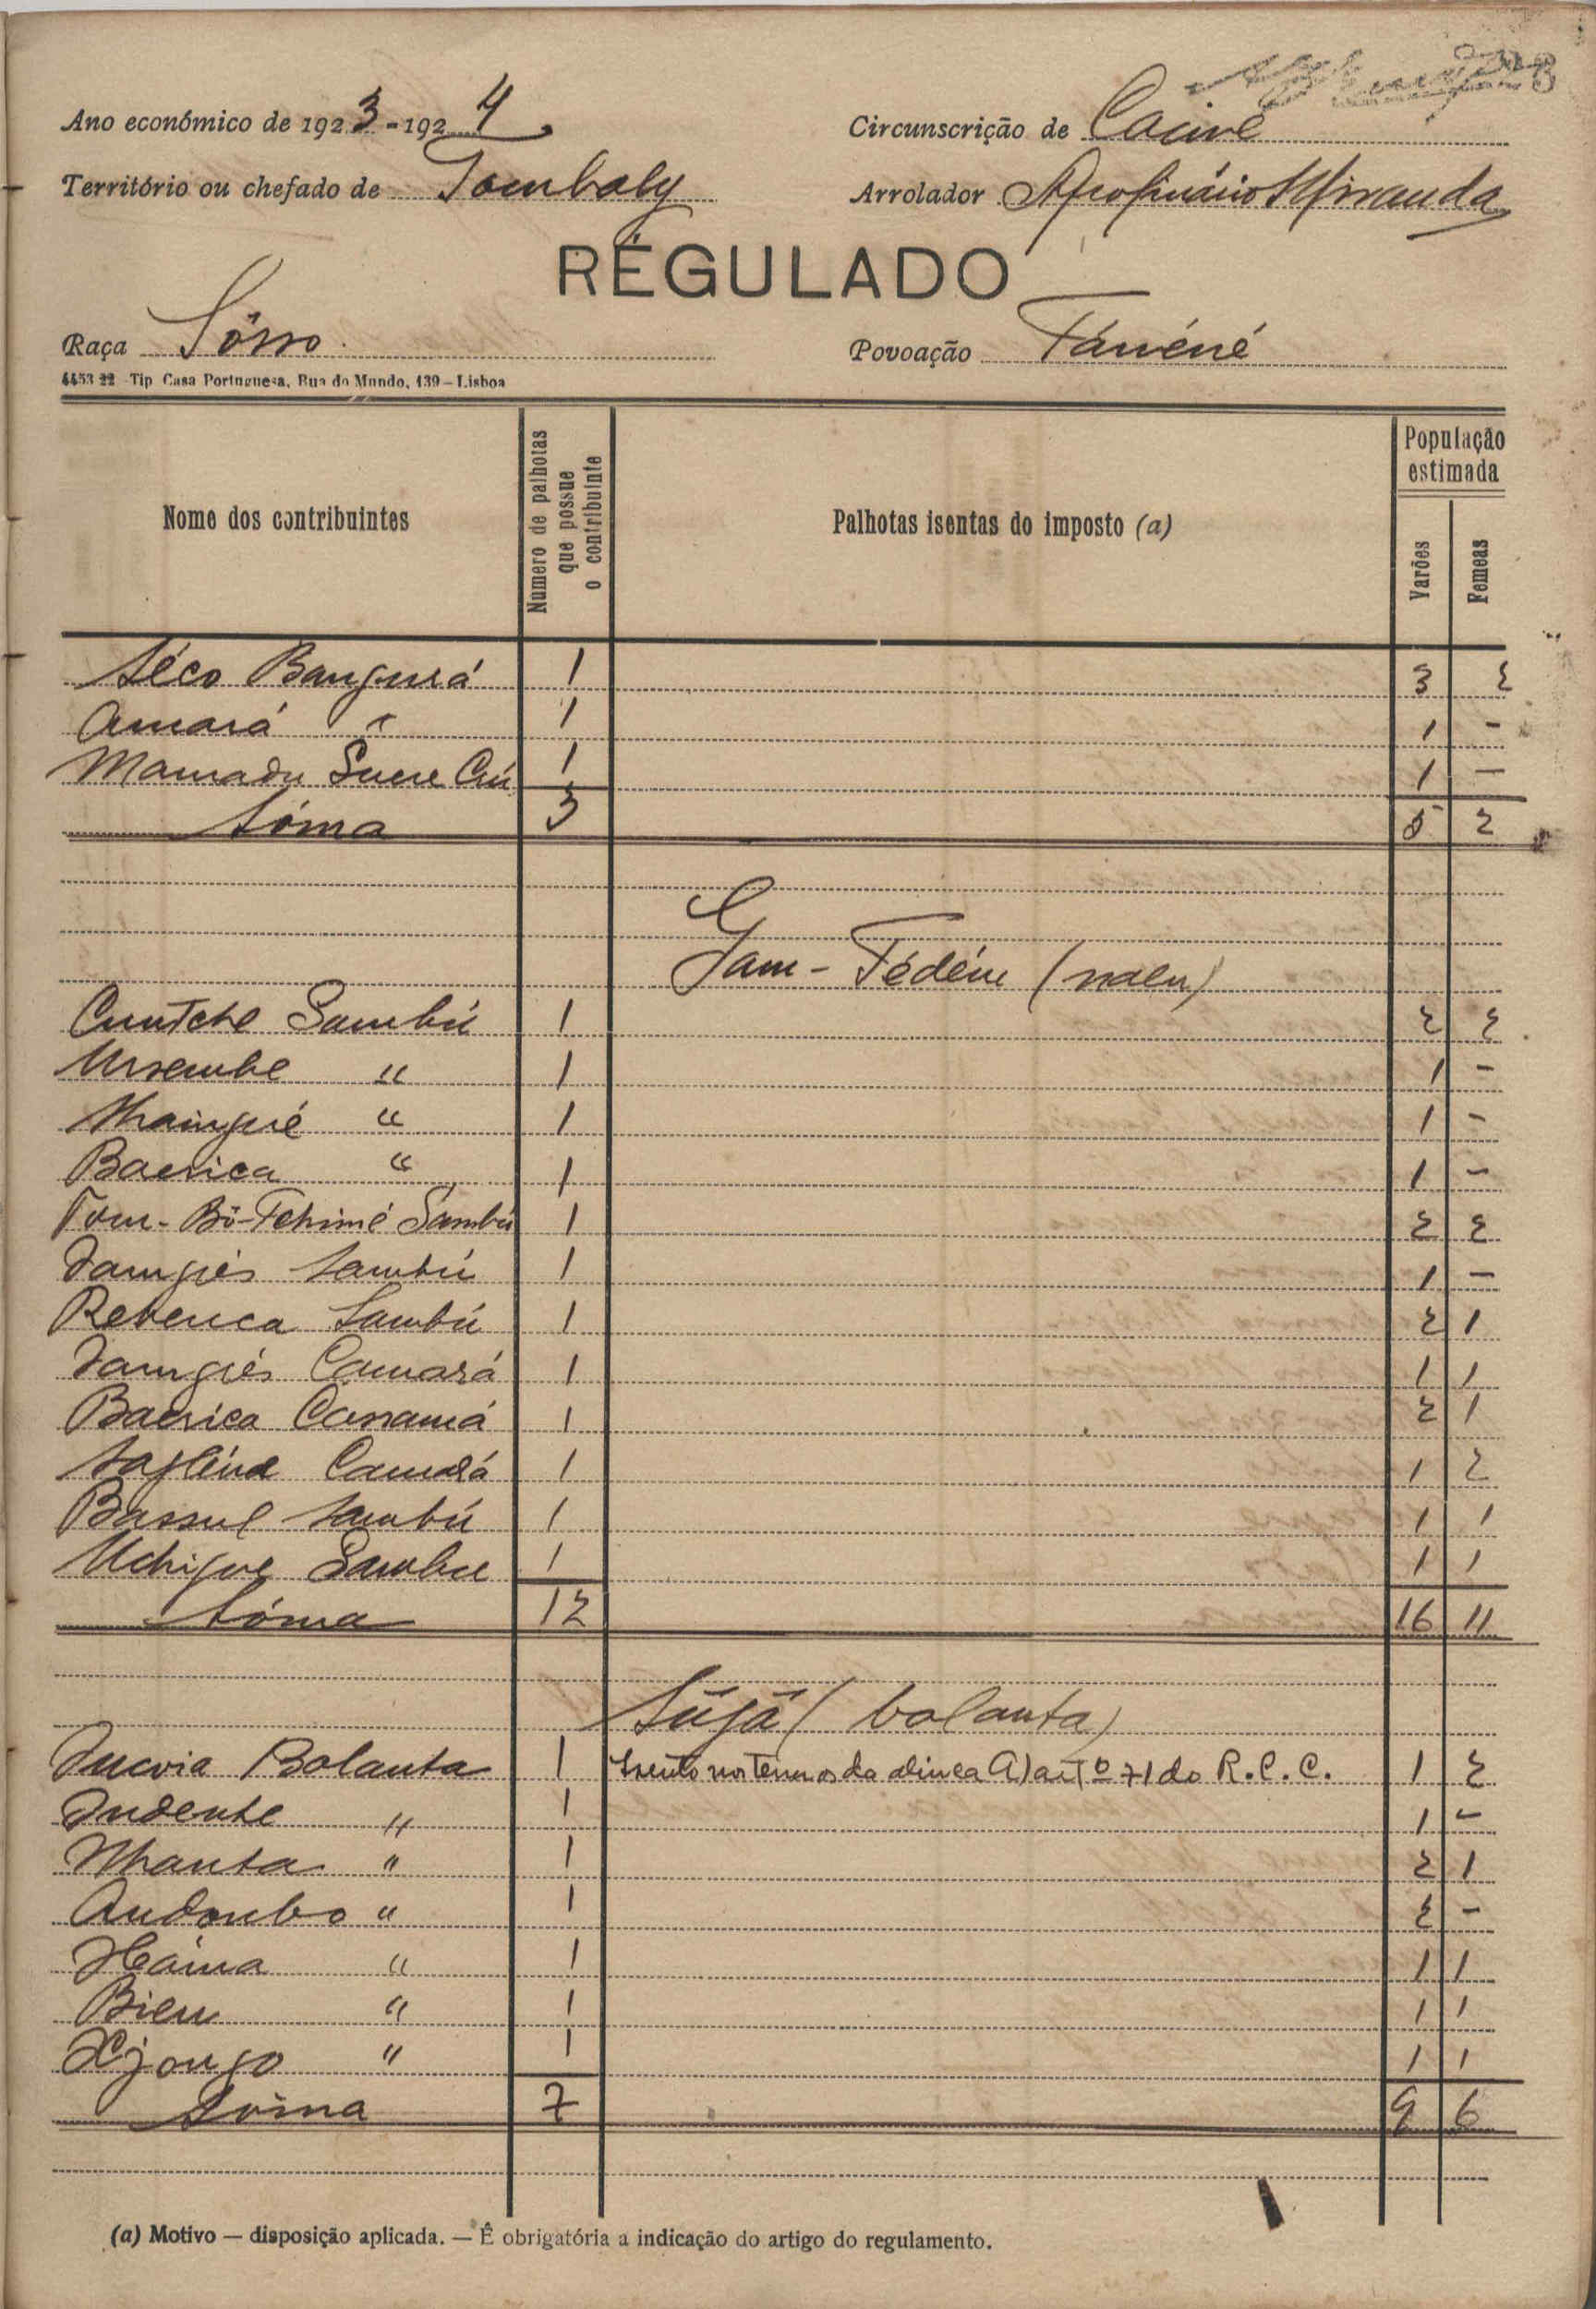 Ano económico de 1923-1924
Circunscrição de Caciné
Território ou chefado de Tombaly
Arrolador Apolinário Miranda
RÉGULADO
Raça Sôsso
Povoação Fánéné
4453 22 Tip Casa Portuguesa, Rua do Mundo, 139 - Lisboa
Nome dos contribuintes
Numero de palhotas que possue o contribuinte
Palhotas isentas do imposto (a)
População estimada
Varões
Femeas
Séco Bangurá 1 3 2
Amará " 1 1 -
Mamadu 1 1 -
Sôma 3 5 2
Gam-Tédéne (nalu)
Cuntche Sambú 1 2 2
" 1 1 -
" 1 1 -
Baerica " 1 1 -
Tom-Bô-Tchimé Sambú 1 2 2
Sambú 1 1 -
Rebenca Sambú 1 2 1
Camará 1 1 1
Baerica Cassamá 1 2 1
Camará 1 1 2
Bassul Sambú 1 1 1
Sambu 1 1 1
Sôma 12 16 11
(balanta)
Balanta 1 Isento nos termos da alinea A) artº 71 do R.C.C. 1 2
Indente " 1 1 -
Nhanta " 1 2 1
Andombo " 1 2 -
" 1 1 1
Bien " 1 1 1
" 1 1 1
Sôma 7 9 6
(a) Motivo — disposição aplicada. — Ê obrigatória a indicação do artigo do regulamento.